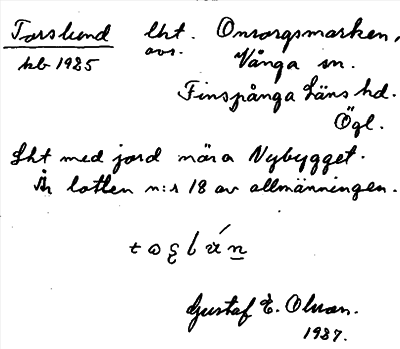 Torslund lht. Onsorgsmarken,
avs.
hb 1925 Vånga sn.
Finspånga Läns hd.
Ögl.
Lht med jord nära Nybygget.
Är lotten n:r 18 av allmänningen.
Gustaf E. Olsson.
1927.